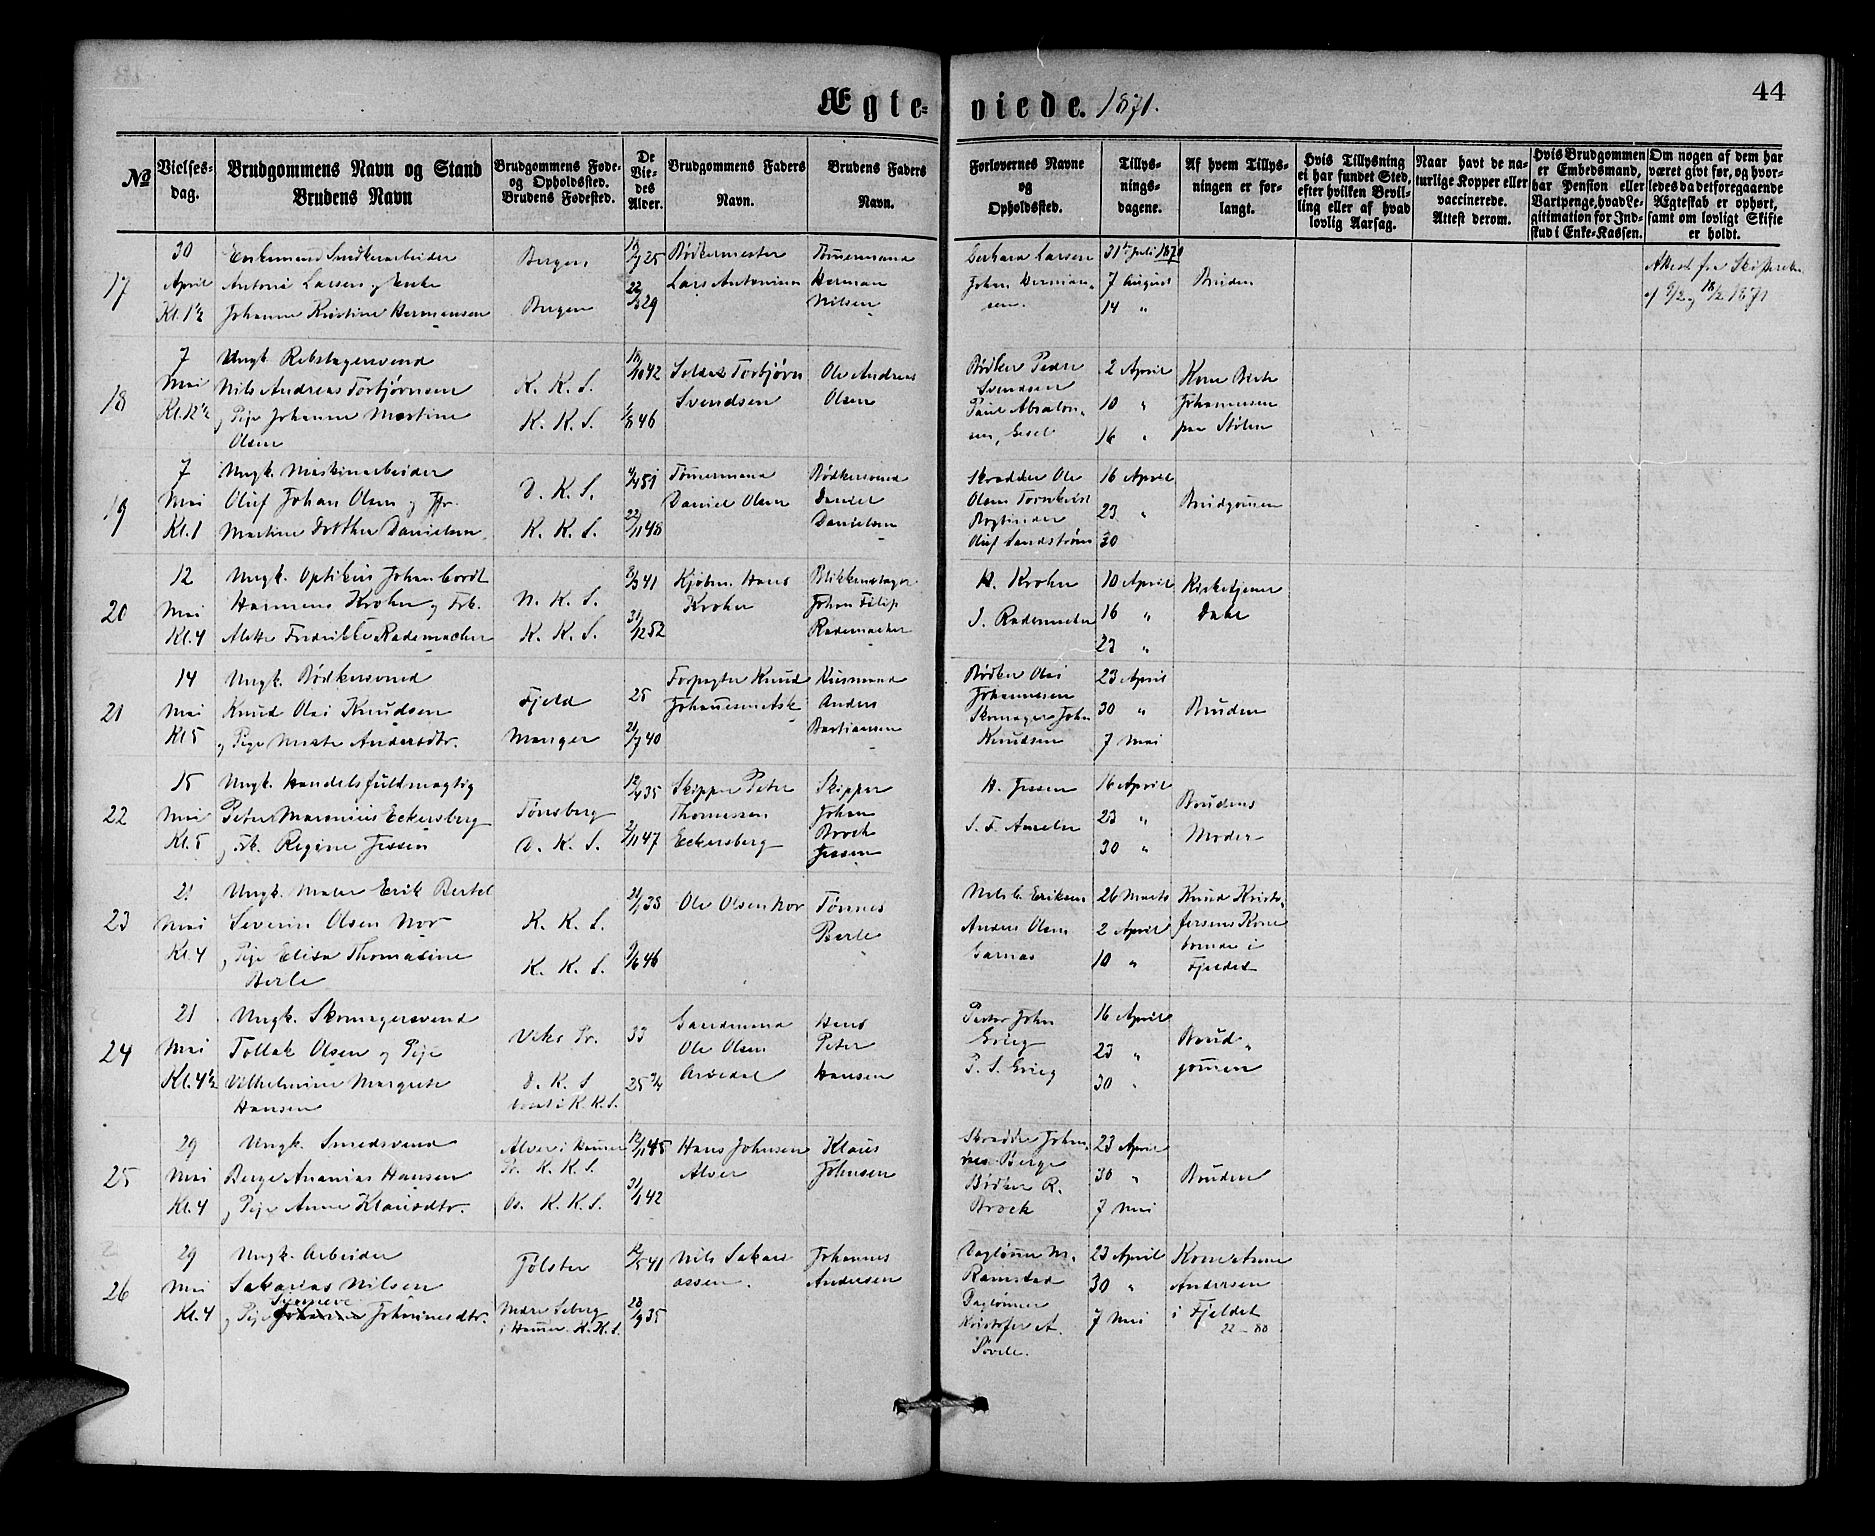 Ægteviede. 1871.
44
No
Vielsesdag.
Brudgommens Navn og Stand
Brudens Navn
Brudgommens Føde- og Opholdssted.
Brudens Fødested.
De Viedes Alder.
Brudgommens Faders Navn.
Brudens Faders Navn.
Forlovernes Navne og Opholdssted.
Tillysningsdagene.
Af hvem Tillysningen er forlangt.
Hvis Tillysning ei har fundet Sted, efter hvilken Bevilling eller af hvad lovlig Aarsag.
Naar havt de naturlige Kopper eller vaccinerede. Attest derom.
Hvis Brudgommen er Embedsmand, har Pension eller Vartpenge, hvad Legitimation for Indskud i Enke-Kassen.
Om nogen af dem har været givt før, og hvorledes da det foregaaende Ægteskab er ophørt, samt om lovligt Skifte er holdt.
17
30 April Kl. 1½
Enkemand Smedkearbeider
Antoni Larsen og Enke
Johanne Kristine Hermansen
Bergen
Bergen
25
29
Bødkermester
Lars Antonisen
Tømermand
Herman
Nilsen
Gerhard Larsen
Johan Hermansen.
31te Juli 1870
7 August
14 "
Bruden
Attest fra Skifteretten
af 9/2 og 18/2 1871
18
7 Mai Kl. 12½
Ungk. Rebslagersvend
Nils Andreas Torbjørnsen
og Pige Johanne Martine
Olsen
K. K. S.
K. K. S.
42
46
Soldat Torbjørn
Svendsen
Ole Andreas
Olsen
Bødker Peder
Svendsen
Paul Absalonsen,
2 April
10 "
16 "
Kone Birte
Johannesen
paa Stølen
19
7 Mai Kl. 1
Ungk. Maskinarbeider
Oluf Johan Olsen og Jfr.
Martine Dorthea Danielsen
D. K. S.
K. K. S.
51
22/11 48
Tømermand
Daniel Olsen
Bødkersvend
Daniel
Danielsen
Skrædder Ole
Olsen Tornkvist
Bogbinder
Oluf Sandstrøm
16 April
23 "
30
Brudgomen
20
12 Mai Kl. 4
Ungk. Optikus Johan Cordt
Harmens Krohn og Frk.
Mette Fredrikke Rademacher
N. K. S.
K. K. S.
41
31/12 52
Kjøbm. Hans
Krohn
Blikkenslager
Johan Filip
Rademacher
H. Krohn
J. Rademacher
10 April
16 "
23 "
Kirketjener
Dahl
21
14 Mai Kl. 5
Ungk. Bødkersvend
Knud Olai Knudsen
og Pige Marte Andersdtr.
Fjeld
Manger
25
21/7 40
Forpagter Knud
Johannesen Ask
Husmand
Anders
Bastiansen
Bødker Olai
Johannesen
Skomager John
Knudsen
23 April
30 "
7 Mai
Bruden
22
15 Mai Kl. 5
Ungk. Handelsfuldmægtig
Peter Marenius Eckersberg
og Frk. Regine Jessen
Tønsberg
D. K. S.
12/4 35
2/11 47
Skipper Peter
Thomessen
Eckersberg
Skipper
Johan
Brock
Jessen
H. Jessen
16 April
23 "
30 "
Brudens
Moder
23
21 Mai Kl. 4
Ungk. Maler Erik Bertel
Severin Olsen Nor
og Pige Elisa Thomasine
Berle
K. K. S.
K. K. S.
38
9/6 46
Ole Olsen Nor
Tønnes
Berle
Nils C. Eriksen
Anders Olsen
Garnæs
26 Marts
2 April
10 "
Knud Kristofersens Kone
boende i
Fjeldet
24
21 Mai Kl. 4½
Ungk. Skomagersvend
Tollak Olsen og Pige
Vilhelmine Margrete
Hansen
Viks Pr.
D. K. S
boende i K. K. S.
33
25 ¾
Gaardmand
Ole Olsen
Arvedal
Hans
Peter
Hansen
Pastor John
Grieg
P. S. Grieg
16 April
23 "
30 "
Brudgomen
25
29 Mai Kl. 4
Ungk. Smedsvend
Berge Ananias Hansen
og Pige Anna Klausdtr.
Alver i Hammer
Pr. K. K. S.
Os. K. K. S.
12/11 45
31/1 42
Hans Johnsen
Alver
Klaus
Johnsen
Skrædder Johannes Berge
Bødker R.
Brock
23 April
30 "
7 Mai
Bruden
26
29 Mai Kl. 4
Ungk. Arbeider
Sakarias Nilsen
og Pige Synneve Johannesdtr.
Jølster
Nedre Seberg
i Hammer. K. K. S.
12/5 41
28/9 35
Nils Sakariassen.
Johannes
Andersen
Dagløner M.
Ramstad
Dagløner
Kristofer A.
Søvile.
23 April
30 "
7 Mai
Kone Anne
Andersen
i Fjeldet
22 – 80